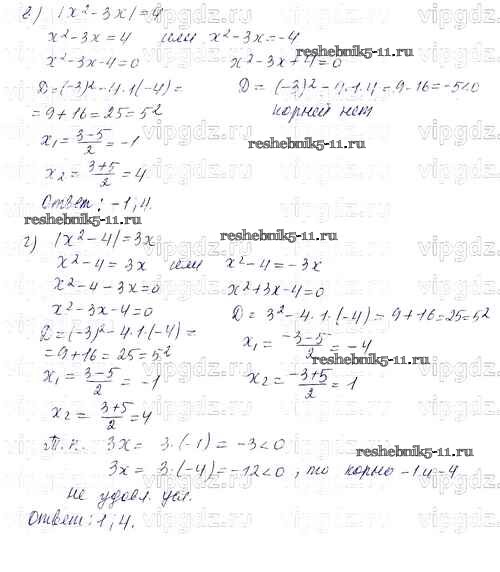 в) |x²-3x|=4
x²-3x=4 или x²-3x=-4
reshebnik5-11.ru
x²-3x-4=0 x²-3x+4=0
D=(-3)²-4·1(-4)= D=(-3)²-4·1·4=9-16=-5<0
=9+16=25=5² корней нет
x₁=(3-5)/2=-1
reshebnik5-11.ru
x₂=(3+5)/2=4
Ответ: -1; 4.
reshebnik5-11.ru
г) |x²-4|=3x
reshebnik5-11.ru
x²-4=3x или x²-4=-3x
x²-4-3x=0 x²+3x-4=0
x²-3x-4=0 D=3²-4·1·(-4)=9+16=25=5²
D=(-3)²-4·1·(-4)= x₁=(-3-5)/2=-4
=9+16=25=5²
reshebnik5-11.ru
x₁=(3-5)/2=-1 x₂=(-3+5)/2=1
x₂=(3+5)/2=4
Т.к. 3x=3·(-1)=-3<0
reshebnik5-11.ru
3x=3·(-4)=-12<0, то корно -1 и -4
не удовл. усл.
Ответ: 1; 4.
vipgdz.ru